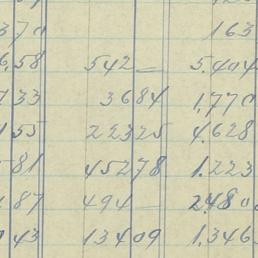 370 163
6.58 542 — 5.404
733 3684 1,770
155 22325 4.628
81 45278 1.223
.87 494 — 2480
043 13409 1,346